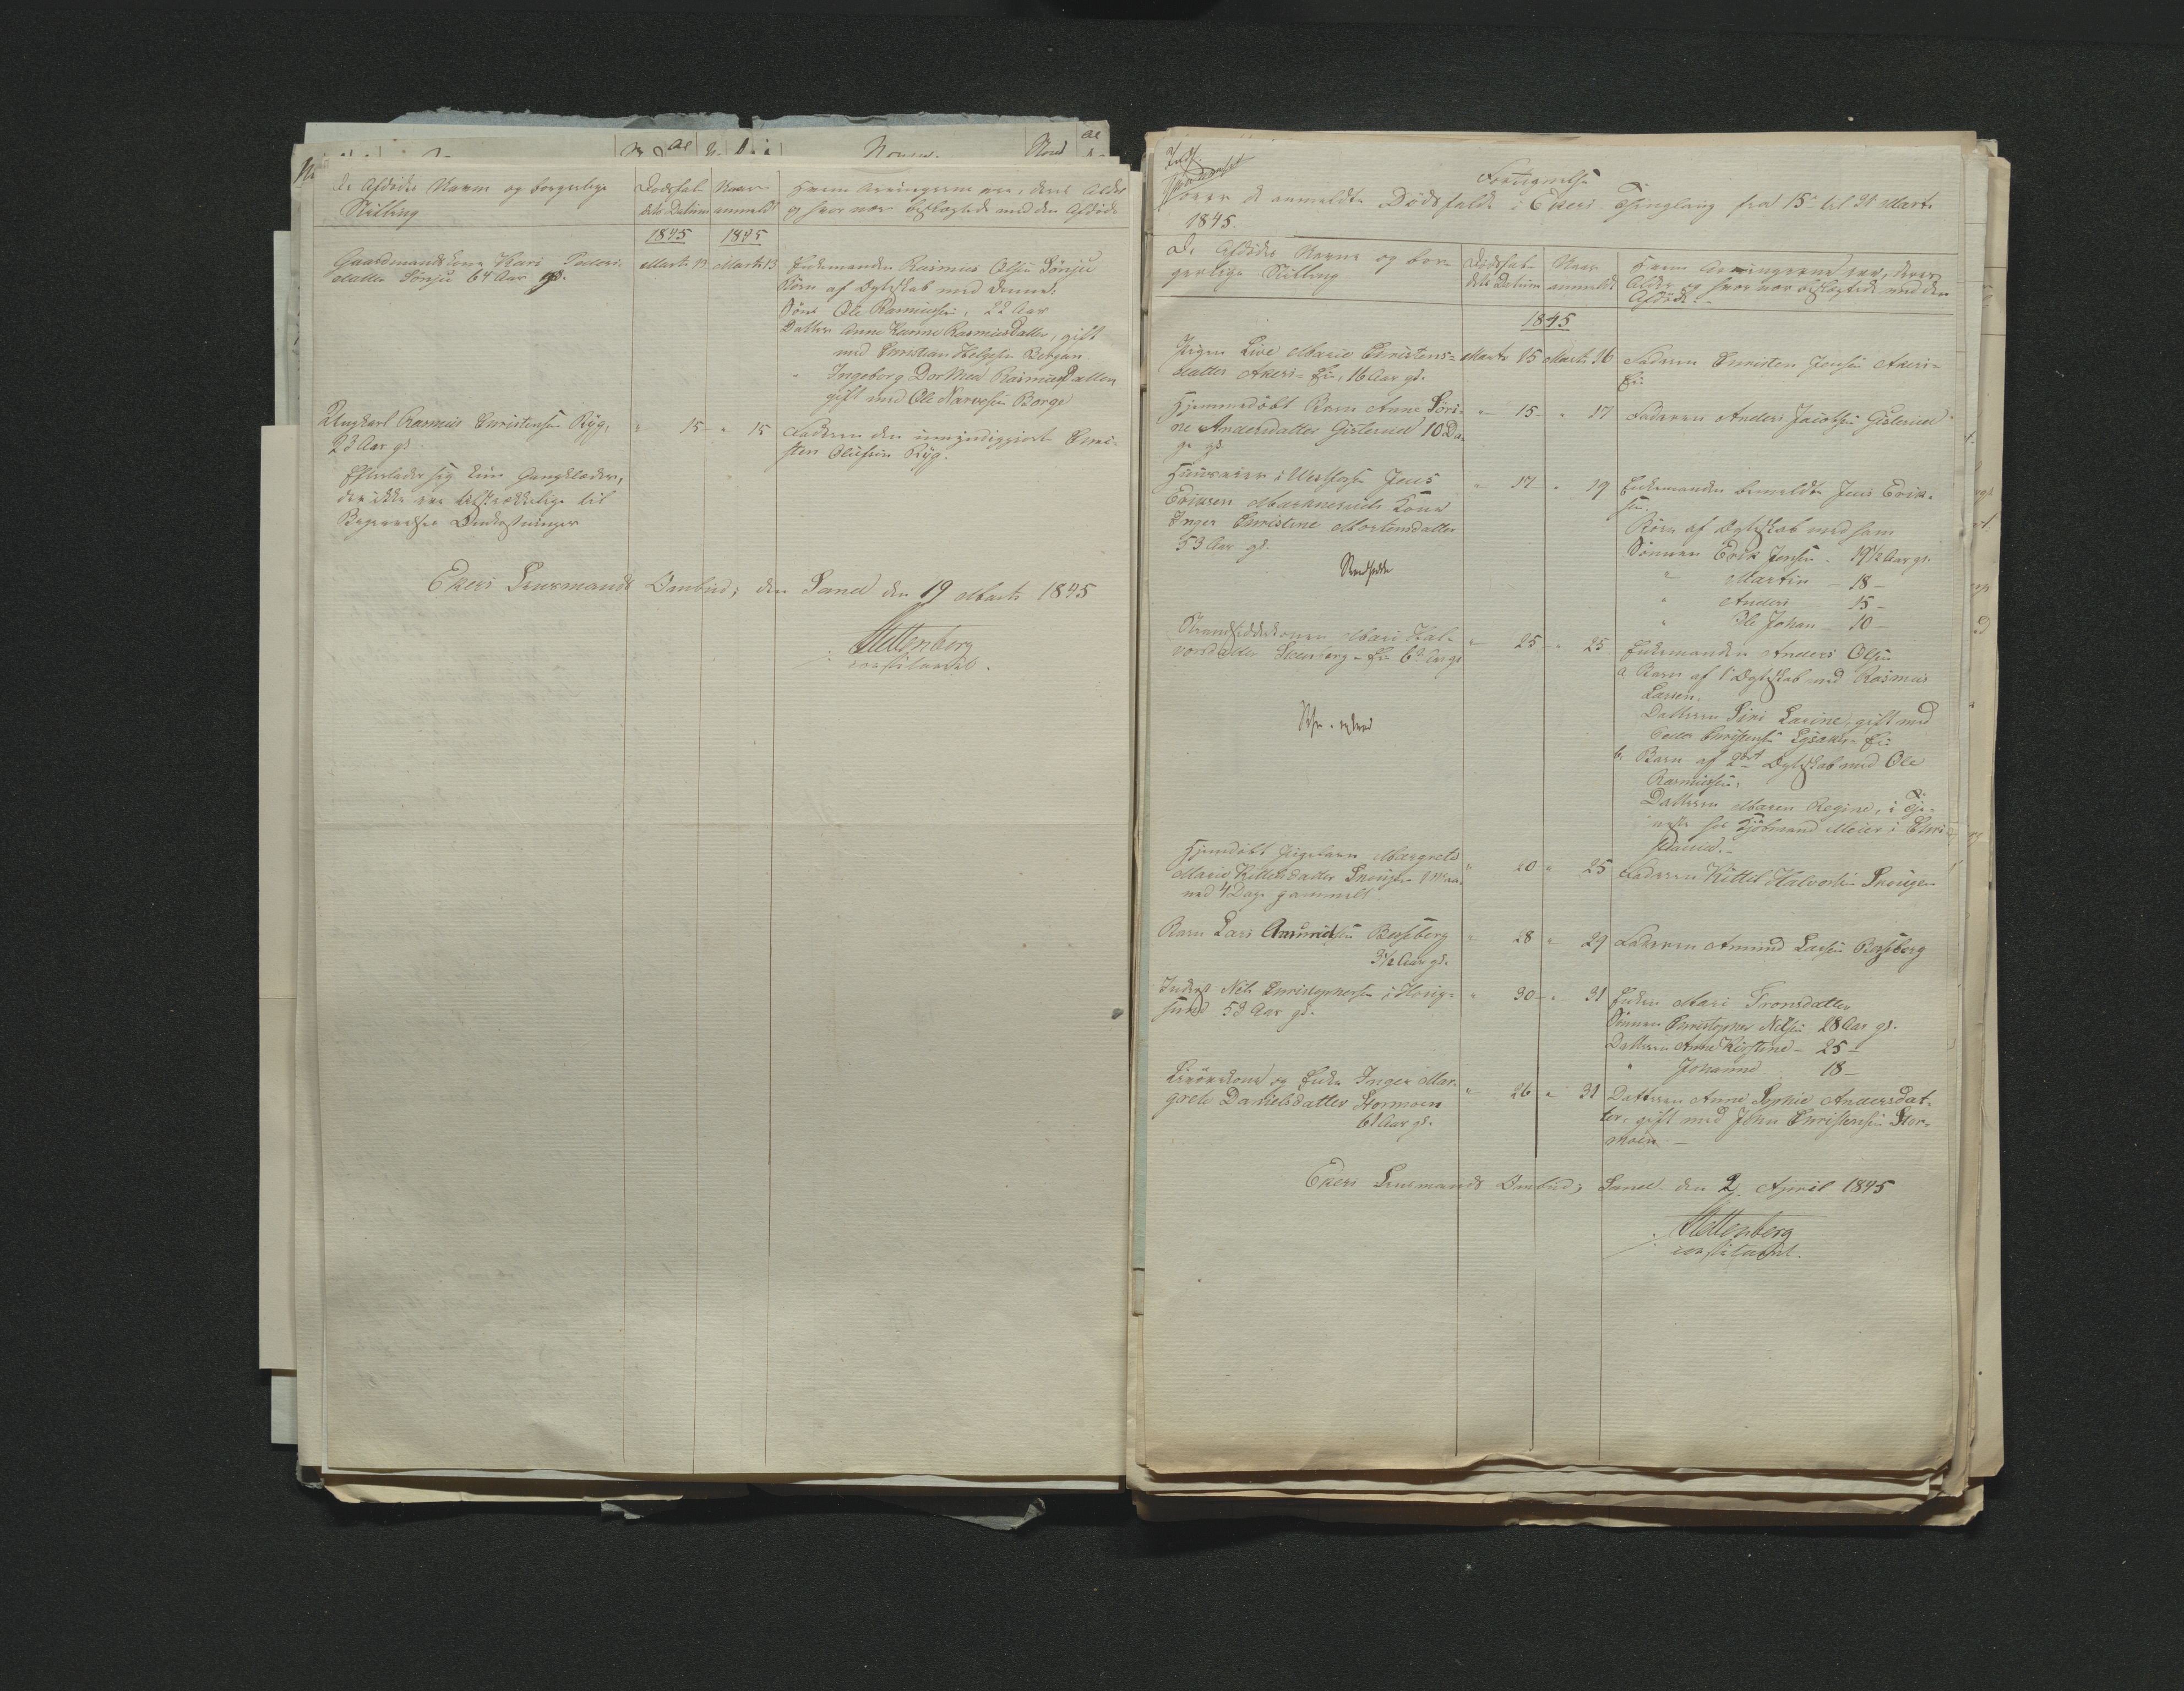 De Afdødes Navn og borgerlige
Stilling
Dødsfal-
dets Datum
Naar
anmeldt
Hvem Arvingerne ere, deres Alder
og hvor nær beslægtede med den Afdøde
1845
1845
Gaardmandskone Kari Peders-
datter Sønju 64 Aar gl.
Marts 13
Marts 13
Enkemanden Rasmus Olsen Sønju
Børn af Ægteskab med denne:
Søns Ole Rasmussen, 22 Aar
Datter Anne Hanne Rasmusdatter, gift
med Christian Helgesen Bergan
" Ingeborg Dorthea Rasmusdatter
gift med Ole Narvesen Borge
Ungkarl Rasmus Christensen Ryg,
23 Aar gl.
" 15 " 15
Faderen den umyndiggjorte Chri-
sten Olufsen Ryg.
Efterlader sig kun Gangklæder,
der ikke ere tilstrækkelige til
Begravelses Omkostninger
Ekers Lensmands Ombud, den Sand den 19 Marts 1845
Stettenberg
constitueret.
Fortegnelse
over de anmeldte Dødsfalde i Ekers Thinglaug fra 15de til 31 Marts
1845.
De Afdødes Navne og bor-
gerlige Stilling
Dødsfal-
dets Datum
Naar
anmeldt
Hvem Arvingerne ere, deres
Alder og hvor nær beslægtede med den
Afdøde.
1845
Pigen Live Marie Christens-
datter Akers-Eie, 16 Aar gl.
Marts 15 Marts 16
Faderen Christen Jensen Akers-
Eie
Hjemmedøbt Barn Anne Søri-
ne Andersdatter Gisterud 10 Da-
ge gl.
" 15 " 17
Faderen Anders Jacobsen Gisterud
Huuseier i Vestfossen Jens
Eriksen Kone
Inger Christine Mortensdatter
53 Aar gl.
" 17 " 19
Enkemanden bemeldte Jens Erik-
sen.
Børn af Ægteskab med ham
Sønnen Erik Jensen - 19½ Aar gl.
" Martin - 18 -
" Anders 15 -
" Ole Johan - 10 -
Mari Hal-
vorsdatter Eie 62 Aar gl
" 25 " 25
Enkemanden Anders Olsen
a Barn af 1ste Ægteskab med Rasmus
Larsen,
Datteren Siri Larine, gift med
Peder Christensen Eie
b. Barn af 2det Ægteskab med Ole
Rasmussen,
Datteren Maren Regine, i Tje-
neste hos Kjøbmand Meier i Chri-
stiania.
Hjemdøbt Pigebarn Margrete
Marie Kittelsdatter Skougen 1 Maa-
ned 4 Dage gammelt
" 20 " 25
Faderen Kittel Halvorsen Skougen
Barn Lars Amundsen Berseberg
3½ Aar gl.
" 28 " 29
Faderen Amund Larsen Berseberg
Inderst Nels Christophersen i Houg-
sund 53 Aar gl.
" 30 " 31
Enken Mari Tronsdatter
Sønnen Christopher Nelsen 28 Aar gl.
Datteren Anne Kirstine - 25 -
" Johanne 18 -
og Enke Inger Mar-
grete Danielsdatter Stormoen
61 Aar gl.
" 26 " 31
Datteren Anne Sophie Andersdat-
ter, gift med John Christensen Stor-
moen. -
Ekers Lensmands Ombud, Sand den 2 April 1845
Stettenberg
constitueret.